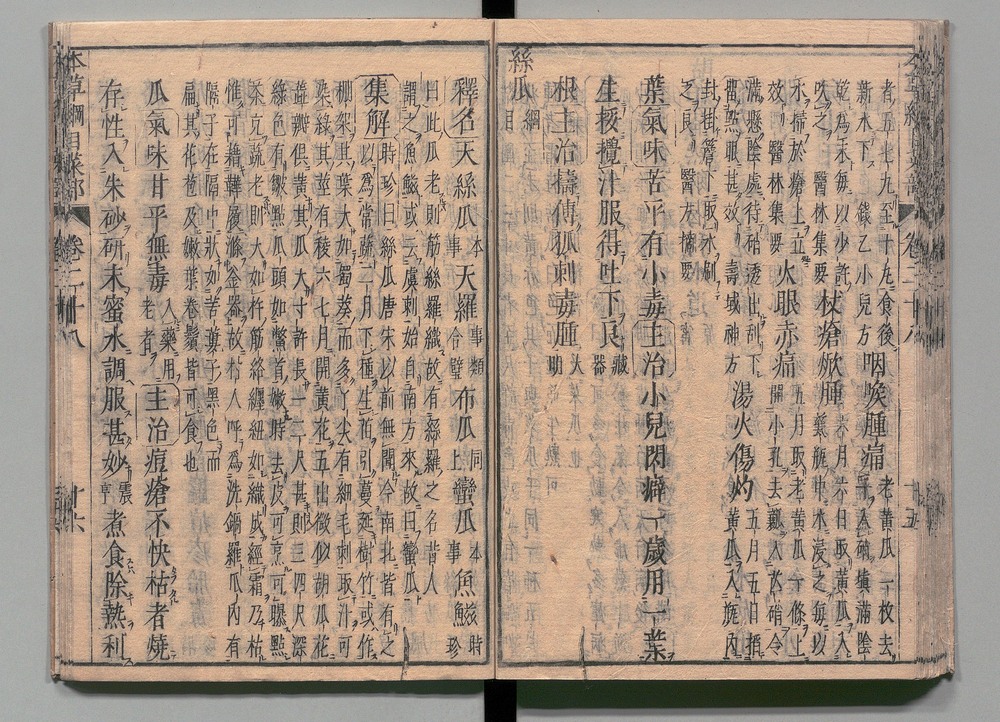 者五七九至十九食後
新水下錢乙小兒方咽喉腫痛老黃瓜一枚去
子入硝填滿陰
乾為末每以少許
吹之醫林集要杖瘡焮腫六月六日取黃瓜入
甆瓶中水浸之每以
水掃於瘡上立
效醫林集要火眼赤痛五月取老黃瓜一條上
開小孔去瓤入芒硝令
滿懸陰處待硝透出刮下
留點眼甚效壽域神方湯火傷灼五月五日掐
黃瓜入瓶內
封掛簷下取水刷
之良醫方摘要
葉氣味苦平有小毒主治小兒閃癖一歲用一葉
生挼攪汁服得吐下良藏器
根主治擣傅狐刺毒腫大明
絲瓜
釋名天絲瓜本事天羅事類合璧布瓜同上蠻瓜本事魚鰦時珍
曰此瓜老則筋絲羅織故有絲羅之名昔人
謂之魚鰦或云虞刺始自南方來故曰蠻瓜
集解時珍曰絲瓜唐宋以前無聞今南北皆有之
以為常蔬二月下種生苗引蔓延樹竹或作
棚架其葉大如蜀葵而多丫尖有細毛刺取汁可
染綠其莖有稜六七月開黃花五出微似胡瓜花
蕊瓣俱黃其瓜大寸許長一二尺甚則三四尺深
綠色有皺點瓜頭如鱉首嫩時去皮可烹可曝點
茶充蔬老則大如杵筋絡纏紐如織成經霜乃枯
惟可藉鞾履滌釜器故村人呼為洗鍋羅瓜內有
隔子在隔中狀如栝蔞子黑色而
扁其花苞及嫩葉卷鬚皆可食也
瓜氣味甘平無毒入藥用老者主治痘瘡不快枯者燒
存性入朱砂研末蜜水調服甚妙震亨煮食除熱利
本草綱目菜部
卷二十八
十五
十六